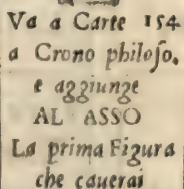 Va a Carte 154
a Crono philoſo.
e aggiunge
AL ASSO
La prima Figura
che cauerai